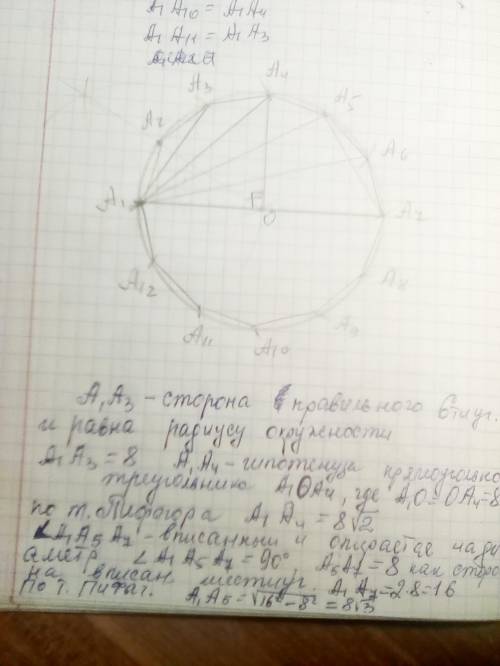 A₁A₁₀ = A₁A₄
A₁A₁₁ = A₁A₃
A₄
A₃
A₅
A₂
A₆
A₁
O
A₇
A₁₂
A₈
A₁₁
A₉
A₁₀
A₁A₃ - сторона правильного 6тиуг.
и равна радиусу окружности
A₁A₃ = 8 A₁A₄ - гипотенуза прямоугольно
треугольнику A₁OA₄, где A₁O = OA₄ = 8
по т. Пифагора A₁A₄ = 8√2
∠A₁A₅A₇ - вписанный и опирается на ди
аметр ∠A₁A₅A₇ = 90° A₅A₇ = 8 как сторо
на вписан шестиуг. A₁A₇ = 2·8 = 16
По т. Пифаг. A₁A₅ = √16² - 8² = 8√3